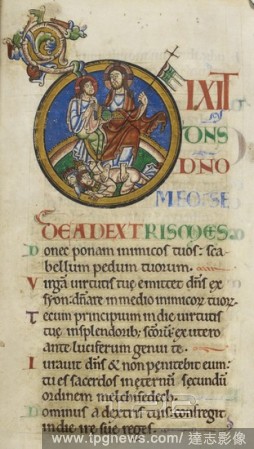 DIXIT
DNS
DNO
MEO: SE
DE A DEXTRIS MEIS.
Donec ponam inimicos tuos: sca
bellum pedum tuorum.
Virgā virtutis tue emittet dn̄s ex
syon: dn̄are in medio inimicor tuor.
Tecum principium in die virtutis
tue in splendorib; sc̄orū ex utero
ante luciferum genui te.
Iuravit dn̄s & non penitebit eum:
tu es sacerdos in eternū secundū
ordinem melchisedech.
Dominus a dextris tuis: confregit
in die ire sue reges.
www.tpgnews.com/ 達志影像